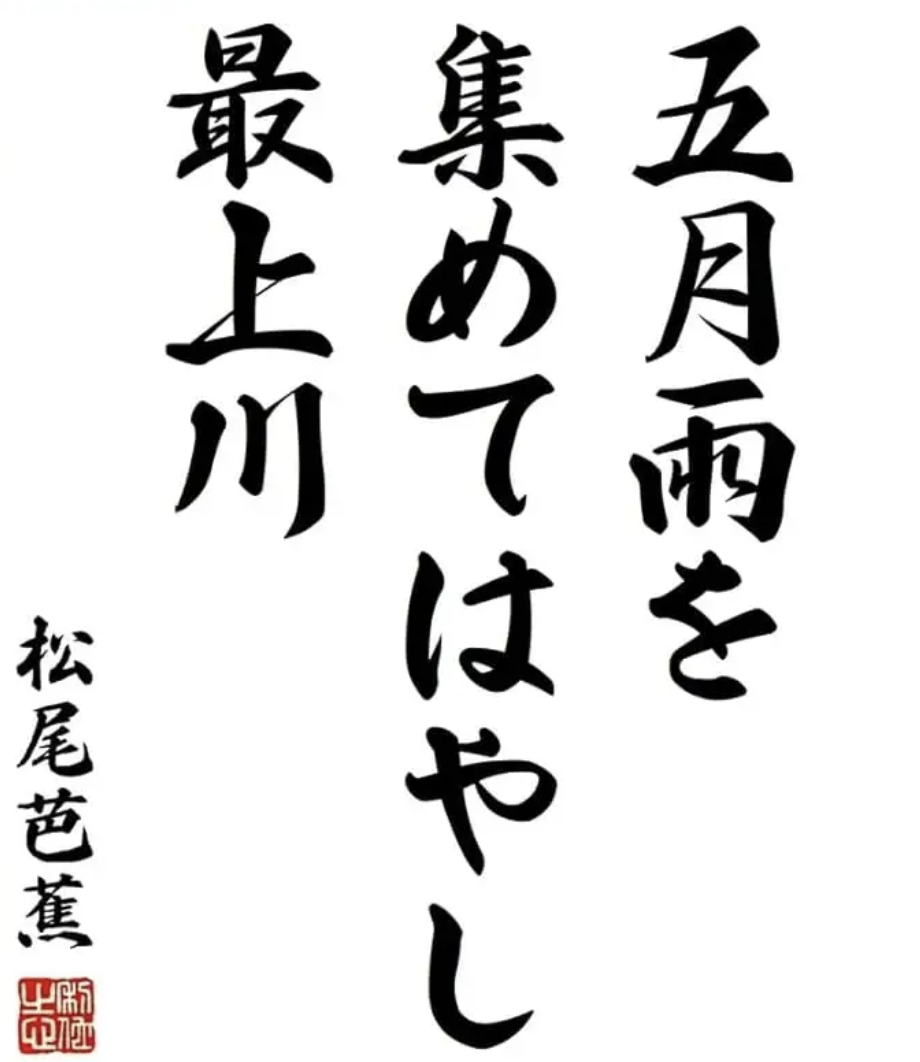 五月雨を
集めてはやし
最上川
松尾芭蕉